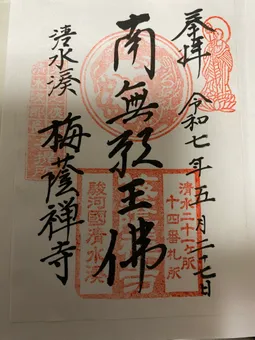 奉拝
令和七年五月二十七日
清水二十一ヶ所
十四番札所
南無願王佛
駿河國清水湊
清水湊
梅蔭禅寺